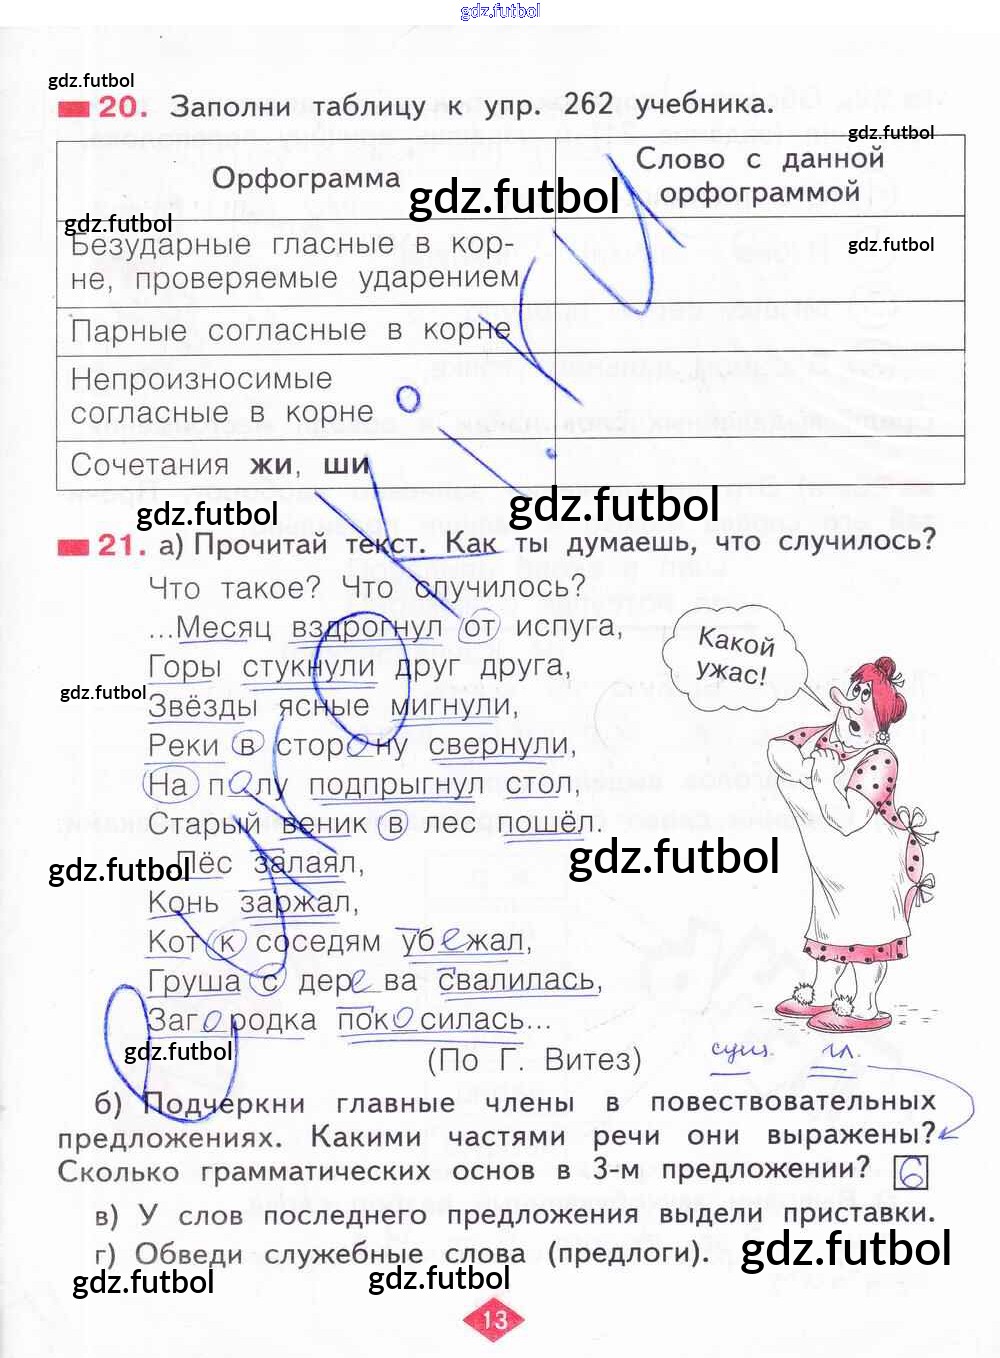 gdz.futbol
gdz.futbol
20. Заполни таблицу к упр. 262 учебника.
gdz.futbol
Орфограмма
Слово с данной
орфограммой
gdz.futbol
gdz.futbol
Безударные гласные в кор-
не, проверяемые ударением
gdz.futbol
Парные согласные в корне
Непроизносимые
согласные в корне
Сочетания жи, ши
gdz.futbol
gdz.futbol
21. а) Прочитай текст. Как ты думаешь, что случилось?
Что такое? Что случилось?
...Месяц вздрогнул от испуга,
Горы стукнули друг друга,
Какой
ужас!
gdz.futbol
Звёзды ясные мигнули,
Реки в сторону свернули,
На полу подпрыгнул стол,
Старый веник в лес пошёл.
gdz.futbol
gdz.futbol
Пёс залаял,
Конь заржал,
Кот к соседям убежал,
Груша с дерева свалилась,
Загородка покосилась...
gdz.futbol
(По Г. Витез)
сущ. гл.
б) Подчеркни главные члены в повествовательных
предложениях. Какими частями речи они выражены?
Сколько грамматических основ в 3-м предложении? 6
в) У слов последнего предложения выдели приставки.
г) Обведи служебные слова (предлоги).
gdz.futbol
gdz.futbol
gdz.futbol
13